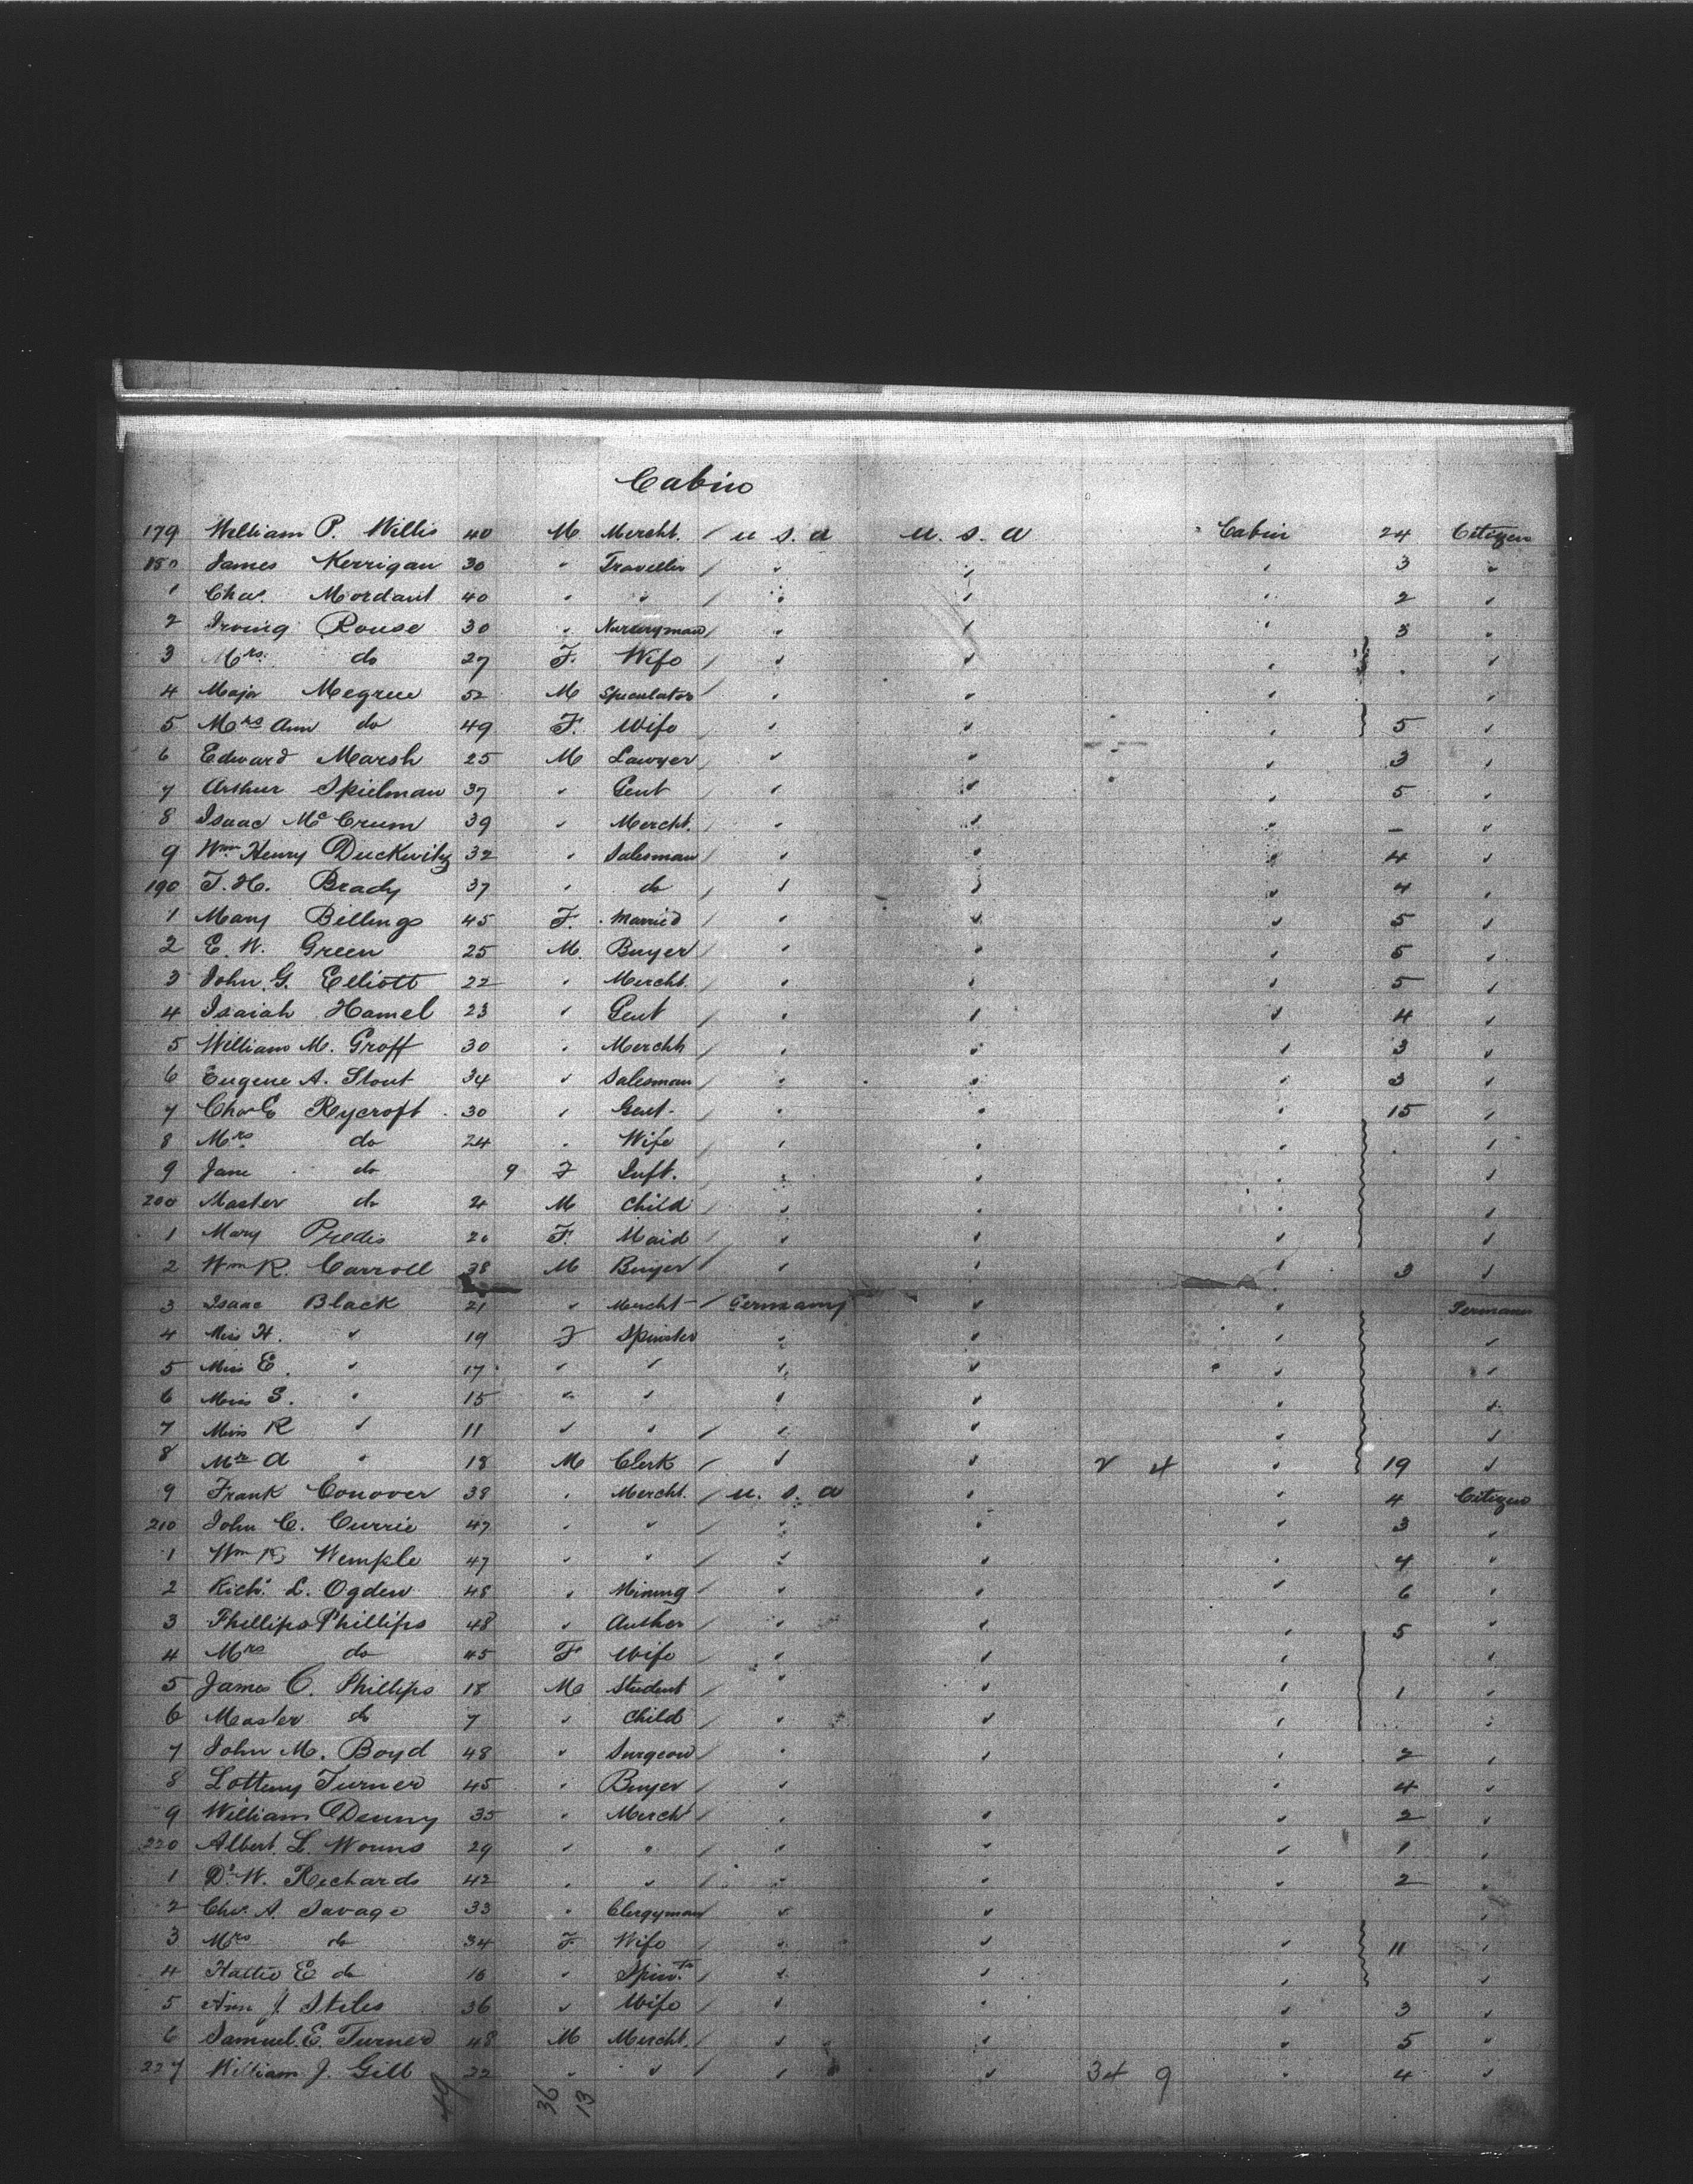 Cabin
179 William P. Willis 40 M Mercht. / U S. A U. S. A " Cabin 24 Citizen
180 James Kerrigan 30 " Traveller / " " " 3 "
1 Chas. Mordant 40 " " / " " " 2 "
2 Irving Rouse 30 " Nurseryman / " " " 3 "
3 Mrs. do 27 F. Wife / " " " "
4 Major Megrue 52 M Speculator / " " " "
5 Mrs Ann do 49 F. Wife / " " " 5 "
6 Edward Marsh 25 M Lawyer / " " " 3 "
7 Arthur Spielman 37 " Gent / " " " 5 "
8 Isaac McCrum 39 " Mercht. / " " " – "
9 Wm Henry Duckwitz 32 " Salesman / " " " 4 "
190 T. H. Brady 37 " do / " " " 4 "
1 Mary Billings 45 F. Married / " " " 5 "
2 E. W. Green 25 M. Buyer / " " " 5 "
3 John. G. Elliott 22 " Mercht. / " " " 5 "
4 Isaiah Hamel 23 " Gent / " " " 4 "
5 William M. Groff 30 " Mercht / " " " 3 "
6 Eugene A. Stout 34 " Salesman / " " " 3 "
7 Chas E Rycroft 30 " Gent. / " " " 15 "
8 Mrs do 24 " Wife / " " " "
9 Jane do 9 F Inft. / " " " "
200 Master do M Child / " " " "
1 Mary F. Maid / " " " "
2 Wm R. Carroll 38 M Buyer / " " " 3 "
3 Isaac Black 21 " Mercht / Germany " " German
4 Miss H. " 19 F Spinster " " " "
5 Miss E. " 17 " " " " " "
6 Miss S. " 15 " " " " " "
7 Miss R " 11 " " / " " " "
8 Mr A " 18 M Clerk / " " 2 4 " 19 "
9 Frank Conover 38 " Mercht. / U. S. A " " 4 Citizen
210 John C. Currie 47 " " / " " " 3 "
1 Wm Wemple 47 " " / " " " 4 "
2 Richd. L. Ogden 48 " Mining / " " " 6 "
3 Phillips Phillips 48 " Author / " " " 5 "
4 Mrs do 45 F Wife / " " " "
5 James C. Phillips 18 M Student / " " " 1 "
6 Master do 7 " Child / " " " "
7 John M. Boyd 48 " Surgeon / " " " 2 "
8 Turner 45 " Buyer / " " 4 "
9 William Denny 35 " Mercht / " " " 2 "
220 Albert. L. 29 " " / " " " 1 "
1 D. W. Richards 42 " " / " " " 2 "
2 Chs. A. Savage 33 " Clergyman " " "
3 Mrs do 34 F. Wife / " " " 11 "
4 Hattie E do 16 " Spinstr / " " " "
5 Ann J. Stiles 36 " Wife / " " " 3 "
6 Samuel. E. Turner 48 M Mercht. / " " " 5 "
227 William J. Gill 22 " " / " " 34 9 " 4 "
49 36 13